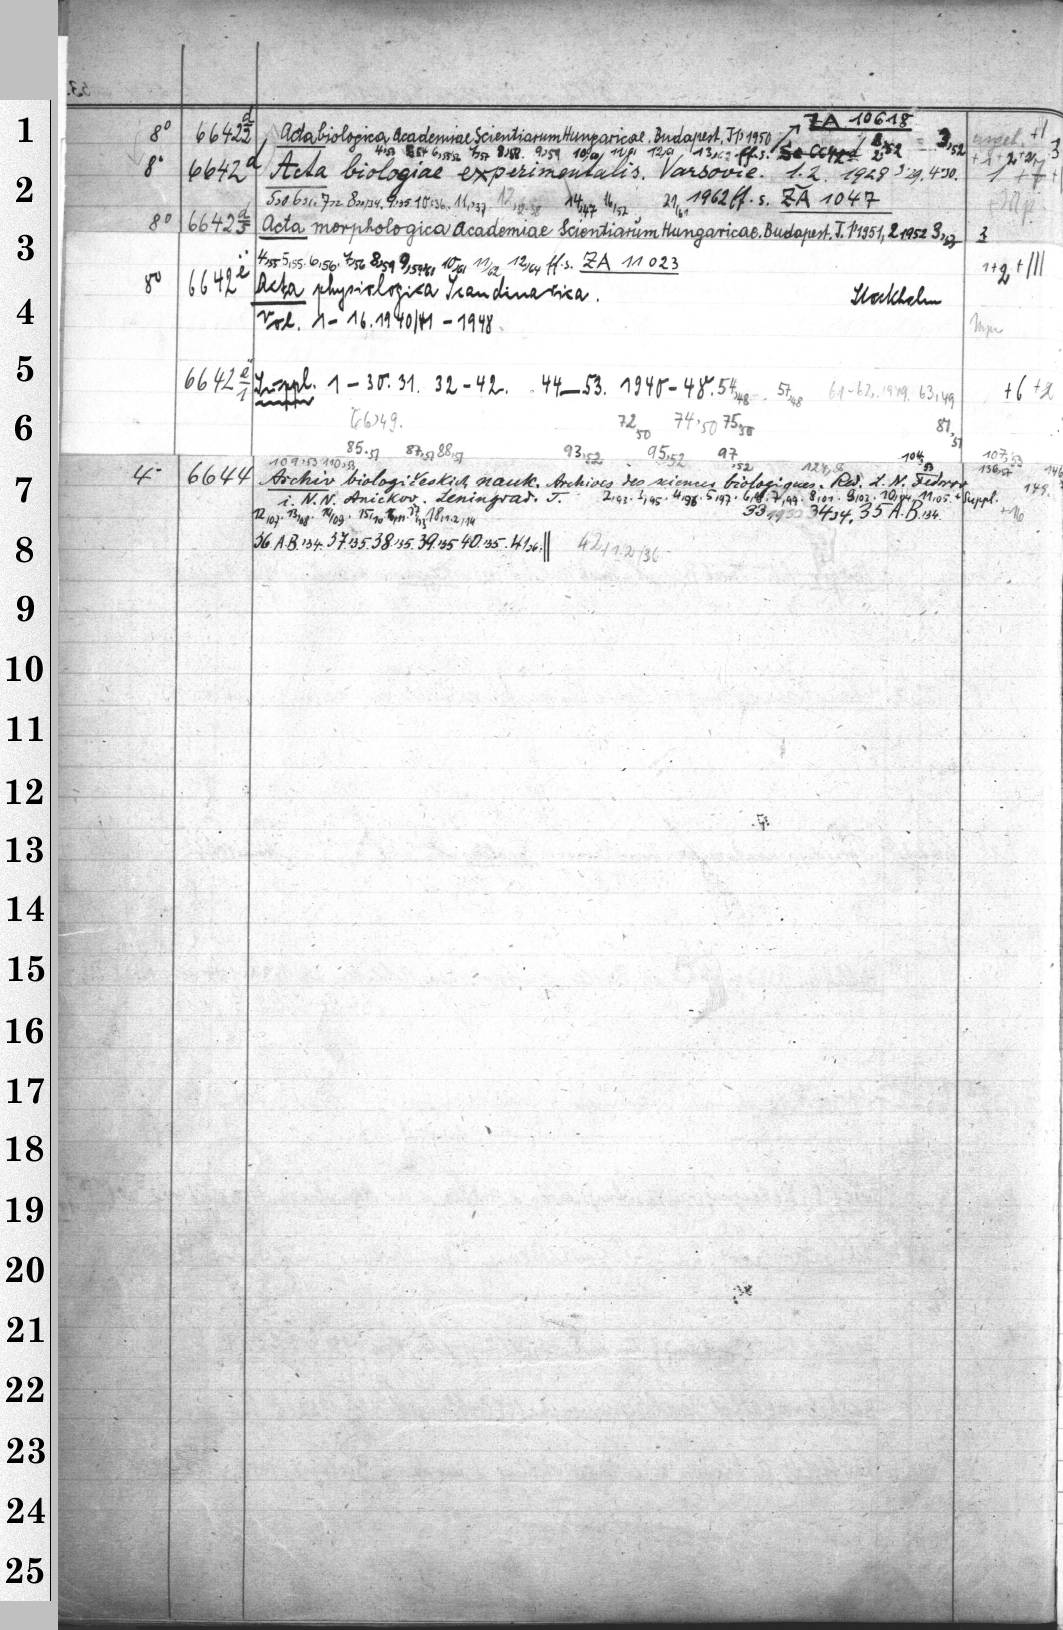 ZA 10618
1 8° 6642 d/2 Acta biologica Academiae Scientiarum Hungaricae. Budapest. T. 1 1950 3,52
8° 6642 d Acta biologiae experimentalis. Varsovie. 1.2. 1928 3,29. 4,30.
2 5,30 6,31. 7,32 8,33/34. 9,35. 10,36. 11,37 14,47 16,52 21,61 1962 ff. s. ZA 1047
8° 6642 d/3 Acta morphologica Academiae Scientiarum Hungaricae. Budapest. T. 1 1951, 2 1952 3,53
3 4,55 5,55. 6,56. 7,56 8,59 10,61 11/62 12/64 ff. s. ZA 11023
8° 6642 e Acta physiologica Scandinavica. Stockholm
4 Vol. 1–16. 1940/41–1948
5 6642 e/1 Suppl. 1–30. 31. 32–42. 44–53. 1940–48. 54,48 57,48 61–62, 1949. 63,49 +6 +2
6 66,49. 72,50 74,50 75,50 81,51
85,51 87,51 88,51 93,52 95,52 97,52 104,53 107,53
109,53 110,53
7 4° 6644 Archiv biologičeskich nauk. Archives des sciences biologiques. Red. L. N. Fedorov
i. N. N. Aničkov. Leningrad. T. 2,93. 3,95. 4,96. 5,97. 6,98. 7,99. 8,01. 9,02. 10,04. 11,05. + Suppl.
12,07. 13,08. 14/09. 15,10 33,1933 34,34. 35 A.B.,34.
8 36 A.B.,34. 37,35. 38,35. 39,35 40,35. 41,36. 42,1.2/36
9
10
11
12
13
14
15
16
17
18
19
20
21
22
23
24
25